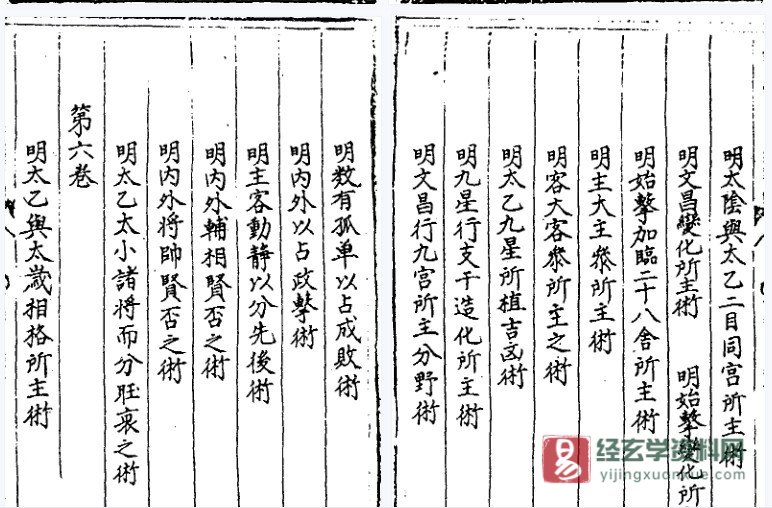 明太陰與太乙二目同宫所主術
明文昌變化所主術　明始擊變化所
明始擊加臨二十八舎所主術
明主大主叅所主術
明客大客叅所主之術
明太乙九星所植吉凶術
明九星行支干造化所主術
明文昌行九宫所主分野術
明数有孤单以占成敗術
明内外以占政擊術
明主客動靜以分先後術
明内外輔相賢否之術
明内外将帥賢否之術
明太乙太小諸将而分旺衰之術
第六巻
明太乙與太歲相格所主術
易
经玄学资料网
yijingxuonxue.com